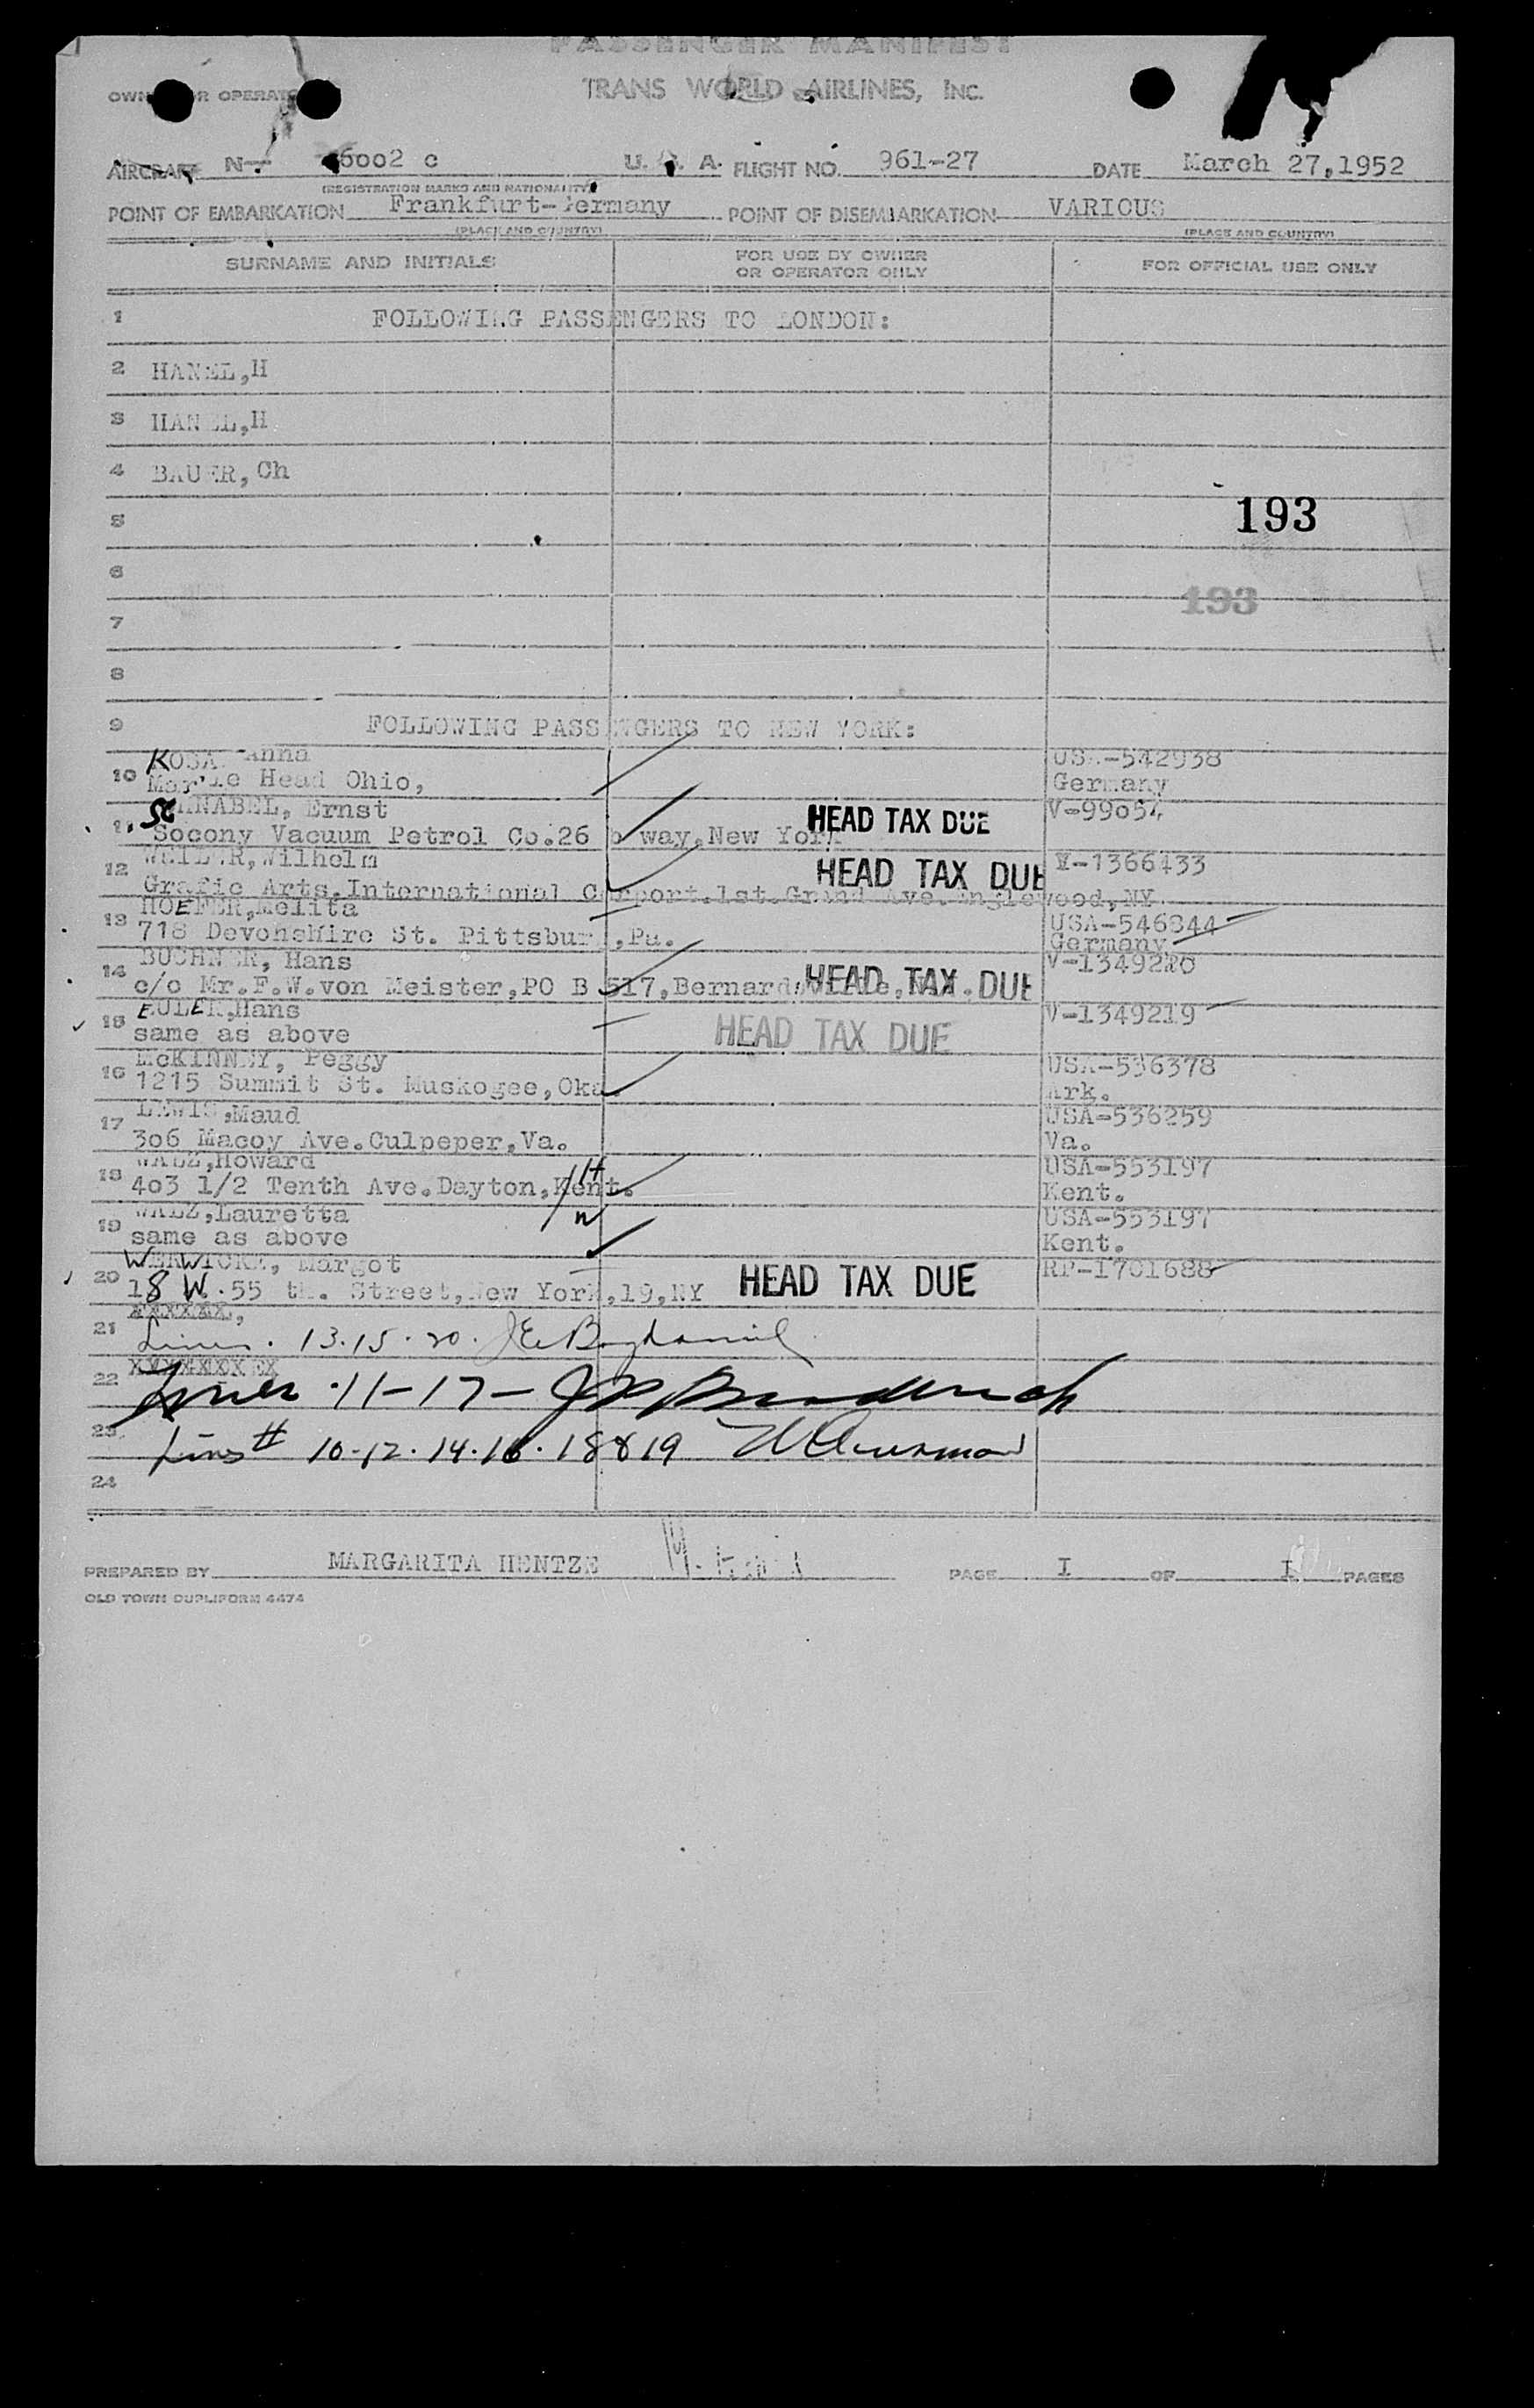 PASSENGER MANIFEST
TRANS WORLD AIRLINES, INC.
OWNER OR OPERATOR
AIRCRAFT N- 6002 c U. S. A. FLIGHT NO. 961-27 DATE March 27,1952
(REGISTRATION MARKS AND NATIONALITY)
POINT OF EMBARKATION Frankfurt-Germany POINT OF DISEMBARKATION VARIOUS
(PLACE AND COUNTRY) (PLACE AND COUNTRY)
SURNAME AND INITIALS FOR USE BY OWNER OR OPERATOR ONLY FOR OFFICIAL USE ONLY
1 FOLLOWING PASSENGERS TO LONDON:
2 HANEL,H
3 HANEL,H
4 BAUER,Ch
193
5
6
193
7
8
9 FOLLOWING PASSENGERS TO NEW YORK:
Anna USA-542938
10 Marble Head Ohio, Germany
SCHNABEL, Ernst HEAD TAX DUE V-99054
11 Socony Vacuum Petrol Co.26 b way,New York
Wilhelm HEAD TAX DUE V-1366433
12 Grafic Arts,International Corport.1st.Grand Ave.Englewood,NY.
HOEFER,Melita USA-546844
13 718 Devonshire St. Pittsburg,Pa. Germany
BUCHNER, Hans V-1349220
14 c/o Mr.F.W.von Meister,PO B 517,Bernardsville, HEAD TAX DUE
EULER,Hans V-1349219
15 same as above HEAD TAX DUE
McKINNEY, Peggy USA-536378
16 1215 Summit St. Muskogee,Oka. Ark.
LEWIS,Maud USA-536259
17 306 Macoy Ave.Culpeper,Va. Va.
WALZ,Howard USA-553197
18 403 1/2 Tenth Ave.Dayton,Kent. H Kent.
WALZ,Lauretta USA-553197
19 same as above W Kent.
WERWICKE, Margot RP-1701688
20 18 W. 55 th. Street,New York,19,NY HEAD TAX DUE
XXXXXX,
21 Lines. 13.15.20.
XXXXXXXXX
22 Lines 11-17-
23 Lines # 10-12.14.16.18&19
24
PREPARED BY MARGARITA HENTZE PAGE I OF I PAGES
OLD TOWN DUPLIFORM 4474